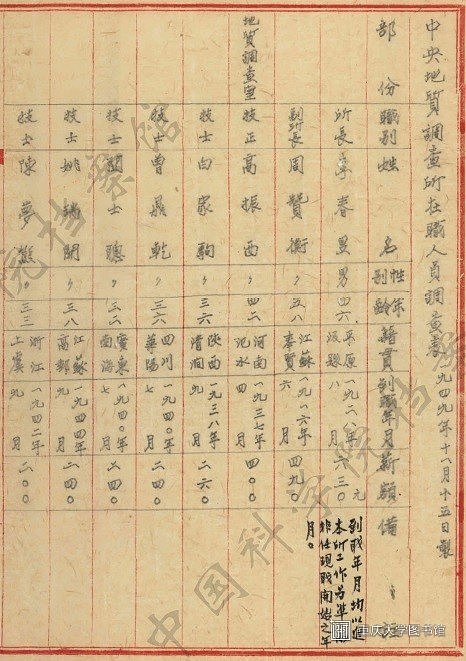 中央地質調查所在職人員調查表 一九四九年十一月十五日製
部份 職別 姓名 性別 年齡 籍貫 到職年月 薪額 備註
所長 李春昱 男 四六 平原汲縣 一九二八年八月 六三〇元
到職年月均以進本所工作為準 非任現職開始之年月。
副所長 周贊衡 〃 五八 江蘇奉賢 一九一六年六月 四九〇
地質調查室 技正 高振西 〃 四二 河南汜水 一九三七年四月 四〇〇
技士 白家駒 〃 三六 陝西清澗 一九三八年九月 二六〇
技士 曾鼎乾 〃 三六 四川華陽 一九四〇年七月 二四〇
技士 關士聰 〃 三二 廣東南海 一九四〇年七月 二四〇
技士 姚瑞開 〃 三八 江蘇高郵 一九四四年九月 二四〇
技士 陳夢熊 〃 三三 浙江上虞 一九四二年九月 二〇〇
中国科学院档案馆
院档案馆
重庆大学图书馆